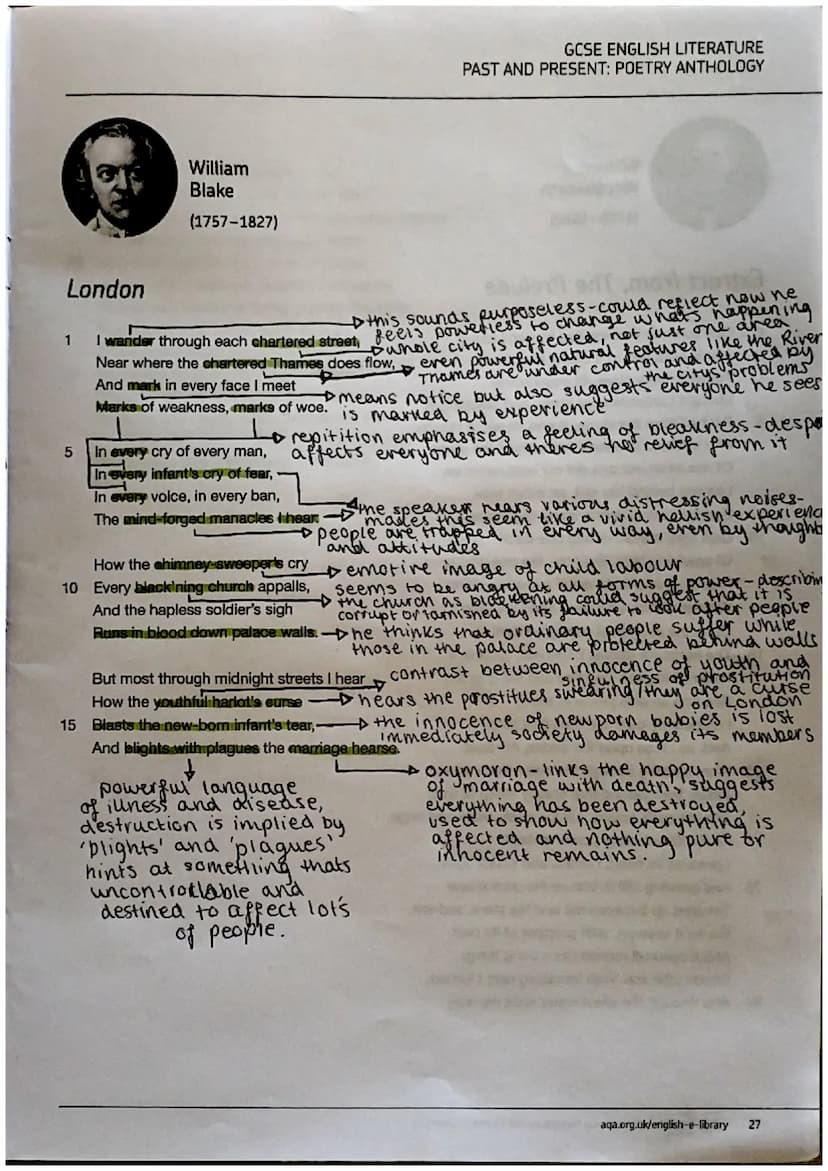 GCSE ENGLISH LITERATURE
PAST AND PRESENT: POETRY ANTHOLOGY
William
Blake
(1757–1827)
London
this sounds purposeless-could reflect how he
feels powerless to change what's happening
1 I wander through each chartered street,
whole city is affected, not just one area
Near where the chartered Thames does flow,
even powerful natural features like the River
Thames are under control and affected by
the city's problems
And mark in every face I meet
means notice but also suggests everyone he sees
is marked by experience
Marks of weakness, marks of woe.
repitition emphasises a feeling of bleakness-despa
affects everyone and there's no relief from it
5 In every cry of every man,
In every infant's cry of fear,
In every voice, in every ban,
The mind-forged manacles I hear:
the speaker hears various distressing noises-
makes this seem like a vivid hellish experienc
people are trapped in every way, even by thought
and attitudes
How the chimney-sweeper's cry
emotive image of child labour
10 Every black'ning church appalls,
seems to be angry at all forms of power-describin
the church as blackening could suggest that it is
corrupt or tarnished by its failure to look after people
And the hapless soldier's sigh
Runs in blood down palace walls.
he thinks that ordinary people suffer while
those in the palace are protected behind walls
But most through midnight streets I hear
contrast between innocence of youth and
sinfulness of prostitution
How the youthful harlot's curse
hears the prostitues swearing/they are a curse
on London
15 Blasts the new-born infant's tear,
the innocence of newporn babies is lost
immediately society damages its members
And blights with plagues the marriage hearse.
powerful language
of illness and disease,
destruction is implied by
'blights' and 'plagues'
hints at something thats
uncontrollable and
destined to affect lot's
of people.
oxymoron-links the happy image
of marriage with death, suggests
everything has been destroyed,
used to show how everything is
affected and nothing pure or
innocent remains.
aqa.org.uk/english-e-library 27